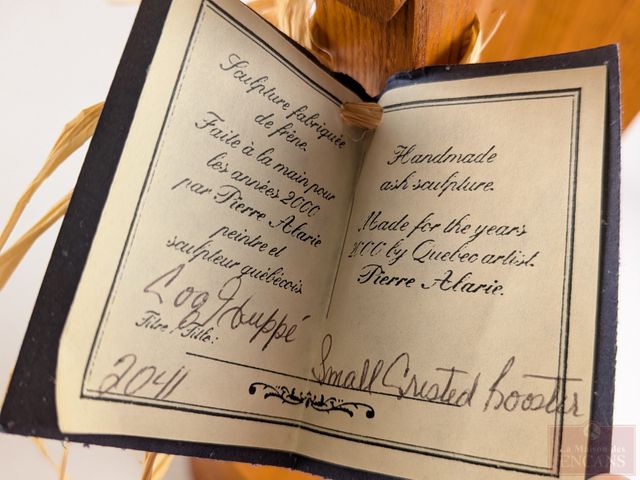 Sculpture fabriquée
de frêne.
Faite à la main pour
les années 2000
par Pierre Alarie
peintre et
sculpteur québécois
Coq Huppé
Titre / Title:
2041
Handmade
ash sculpture.
Made for the years
2000 by Quebec artist.
Pierre Alarie.
Small Crested Rooster
La Maison des
ENCANS